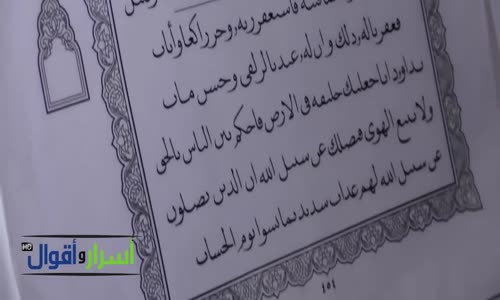 فتنه فاستغفر ربه وخر راكعا وأناب
فغفرنا له ذلك وإن له عندنا لزلفى وحسن مآب
يداود إنا جعلنك خليفة في الأرض فاحكم بين الناس بالحق
ولا تتبع الهوى فيضلك عن سبيل الله إن الذين يضلون
عن سبيل الله لهم عذاب شديد بما نسوا يوم الحساب
٤٥٤
أسرار وأقوال HD